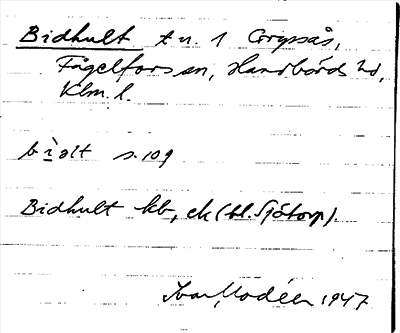 Bidhult t n. 1 Grypsås,
Fågelfors sn, Handbörds hd,
Klm. l.
bìɑlt s. 109
Bidhult kb, ek (bl. Sjötorp).
Ivar Modéer 1947